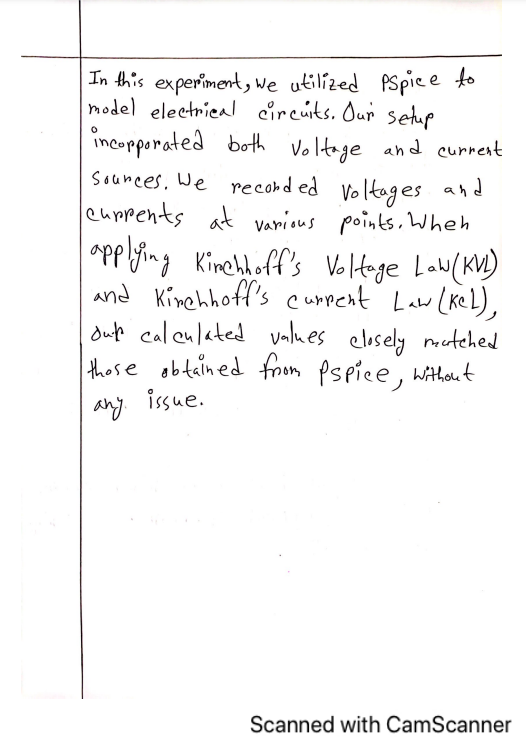 In this experiment, we utilized PSpice to
model electrical circuits. Our setup
incorporated both Voltage and current
Sources. We recorded Voltages and
currents at various points. When
applying Kirchhoff's Voltage Law(KVL)
and Kirchhoff's current Law (KCL),
our calculated values closely matched
those obtained from PSpice, without
any issue.
Scanned with CamScanner